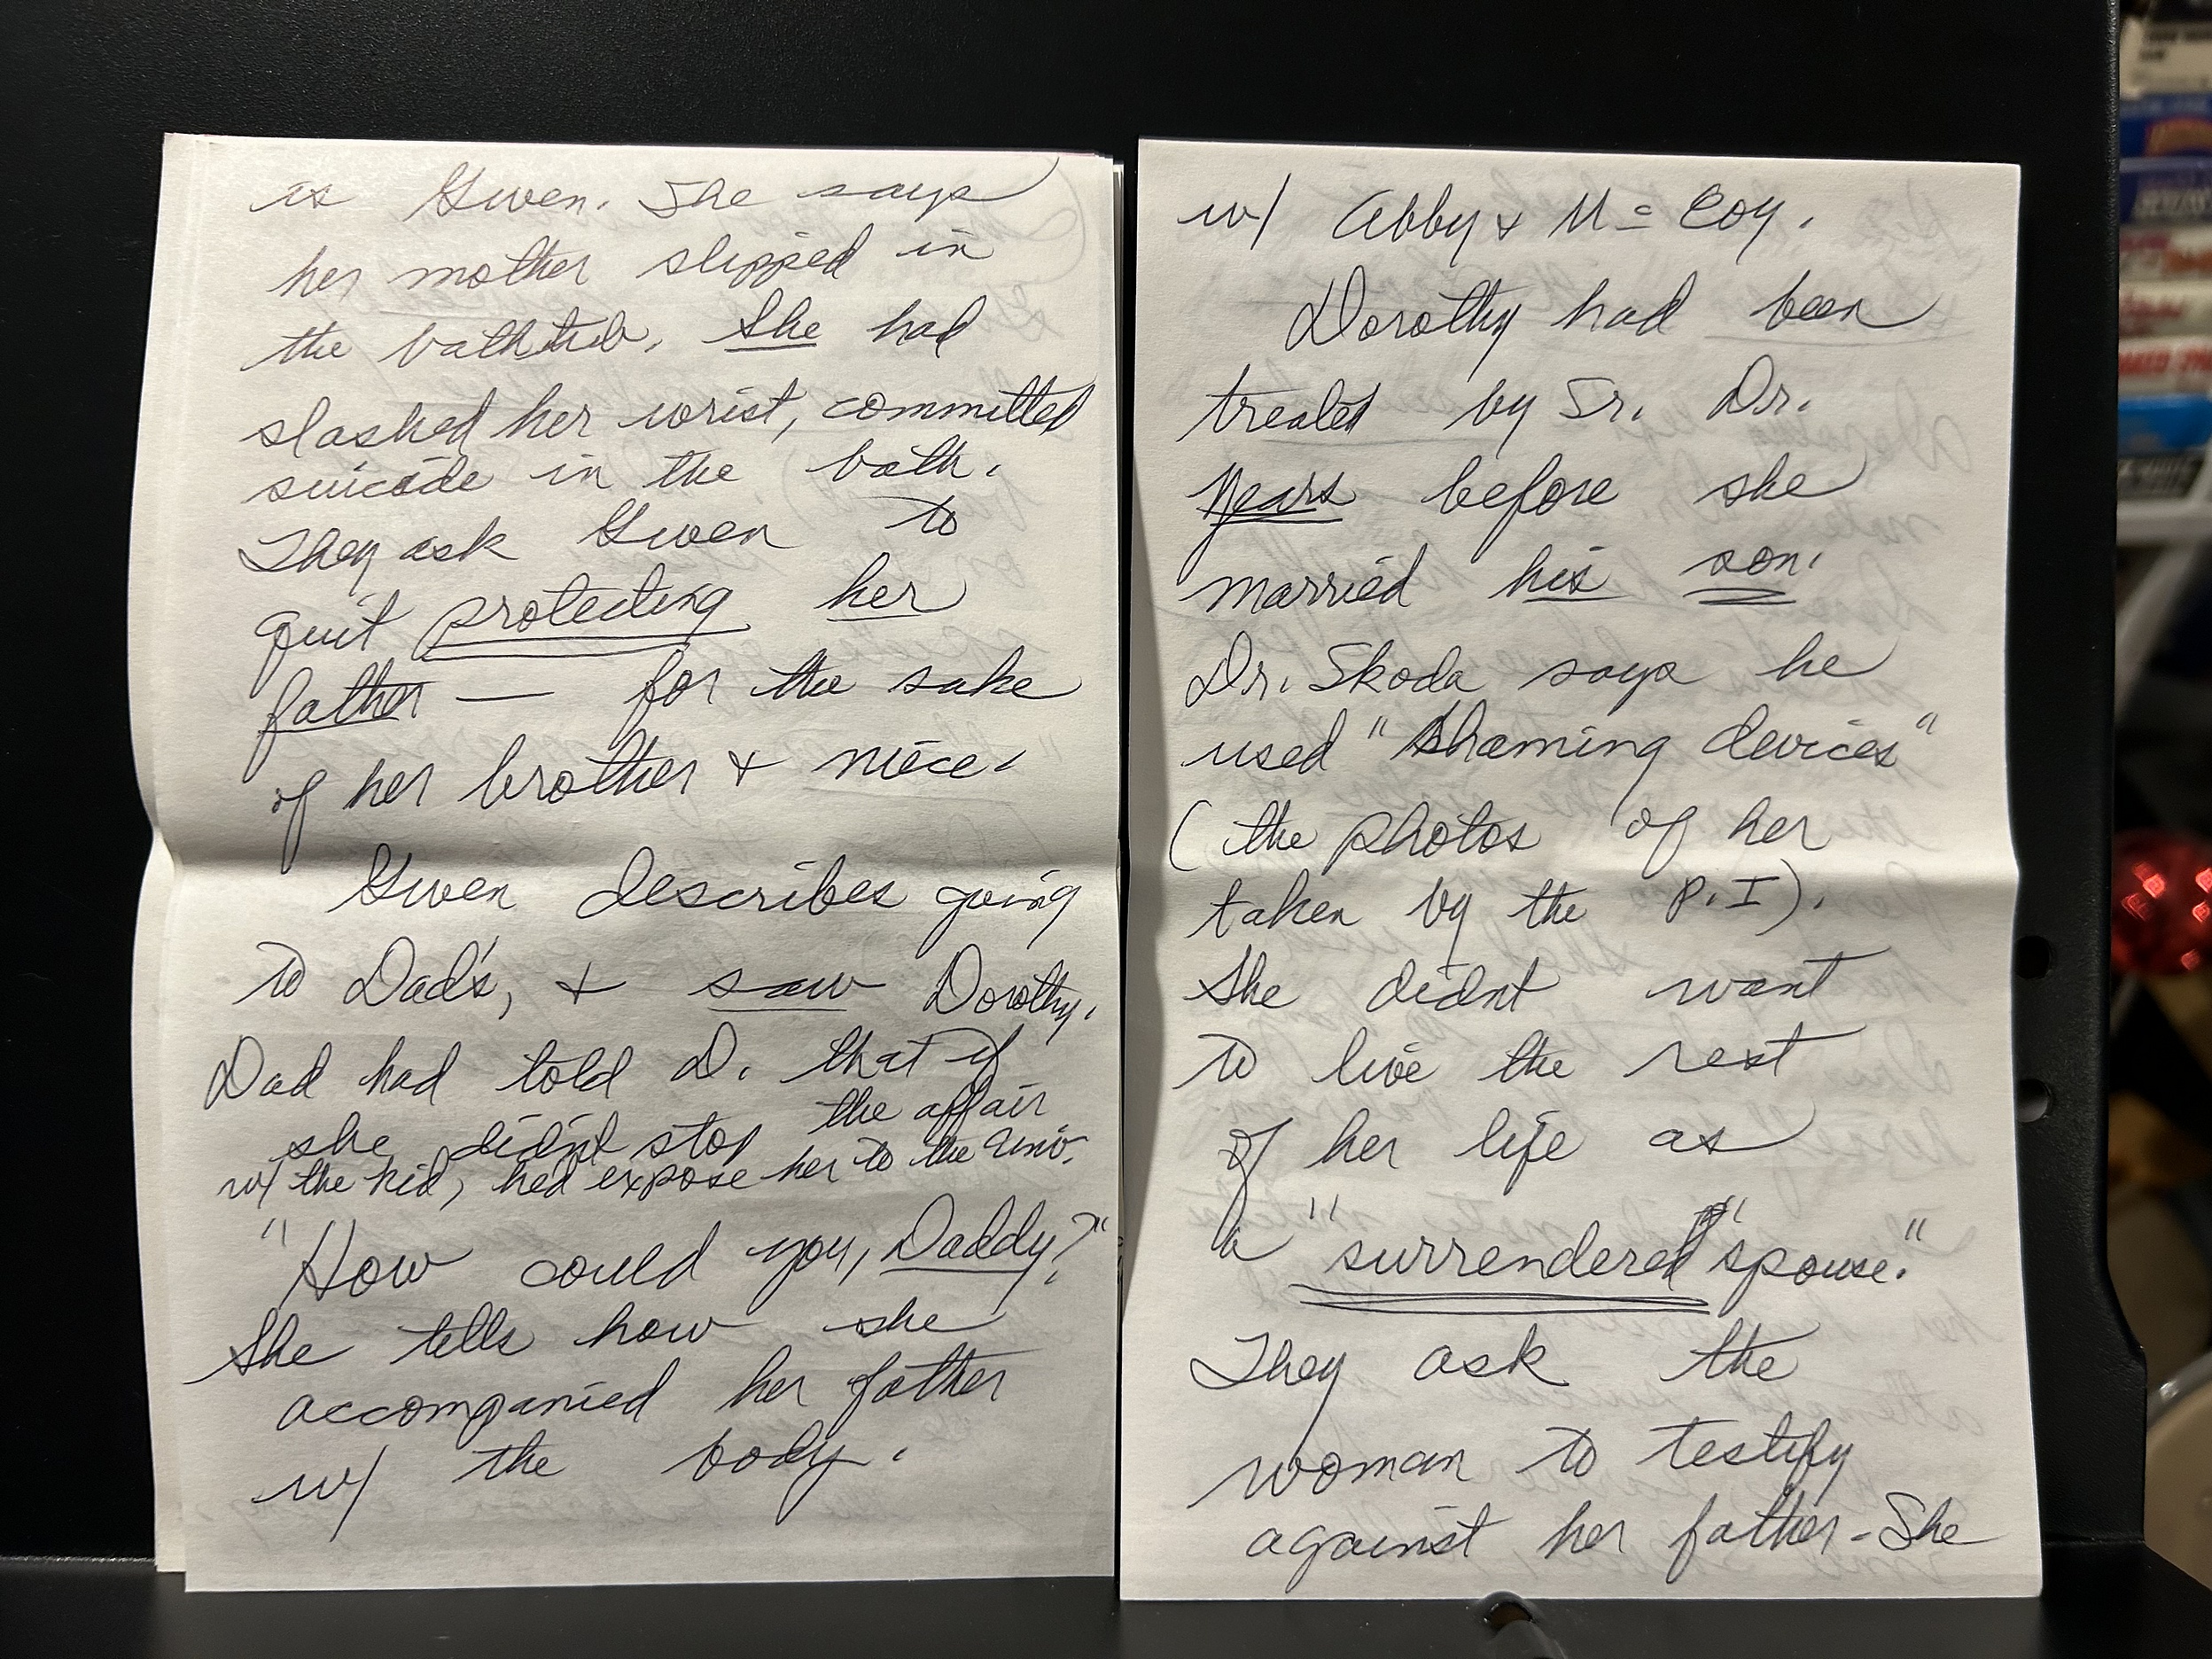 is Gwen. She says
her mother slipped in
the bathtub. She had
slashed her wrist, committed
suicide in the bath.
They ask Gwen to
quit protecting her
father — for the sake
of her brother & niece.
Gwen describes going
to Dad's, & saw Dorothy.
Dad had told D. that if
she didn't stop the affair
w/ the kid, he'd expose her to the Univ.
"How could you, Daddy?"
She tells how she
accompanied her father
w/ the body.
w/ Abby & Mc Coy.
Dorothy had been
treated by Sr. Dr.
years before she
married his son.
Dr. Skoda says he
used "shaming devices"
(the photos of her
taken by the P.I).
She didnt want
to live the rest
of her life as
a "surrendered spouse."
They ask the
woman to testify
against her father - She